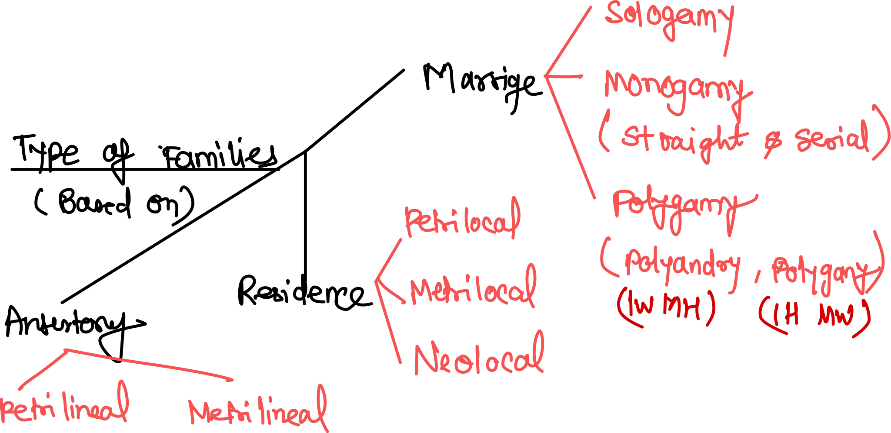 Type of Families
(Based on)
Marrige
Sologamy
Monogamy
(Straight & Serial)
Polygamy
(Polyandry, Polygany)
(1W MH) (1H MW)
Residence
Petrilocal
Metrilocal
Neolocal
Petrilineal
Metrilineal